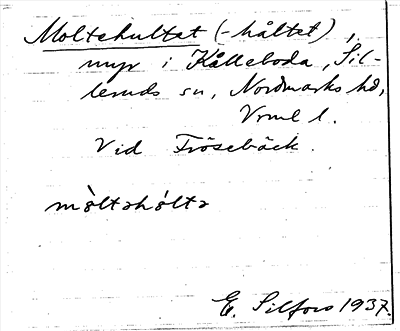 Moltekultet (-håltet),
myr i Kålleboda, Sil-
leruds sn, Nordmarks hd,
Vrml l.
Vid Frösebäck.
mòltəhóltə
E. Silfors 1937.